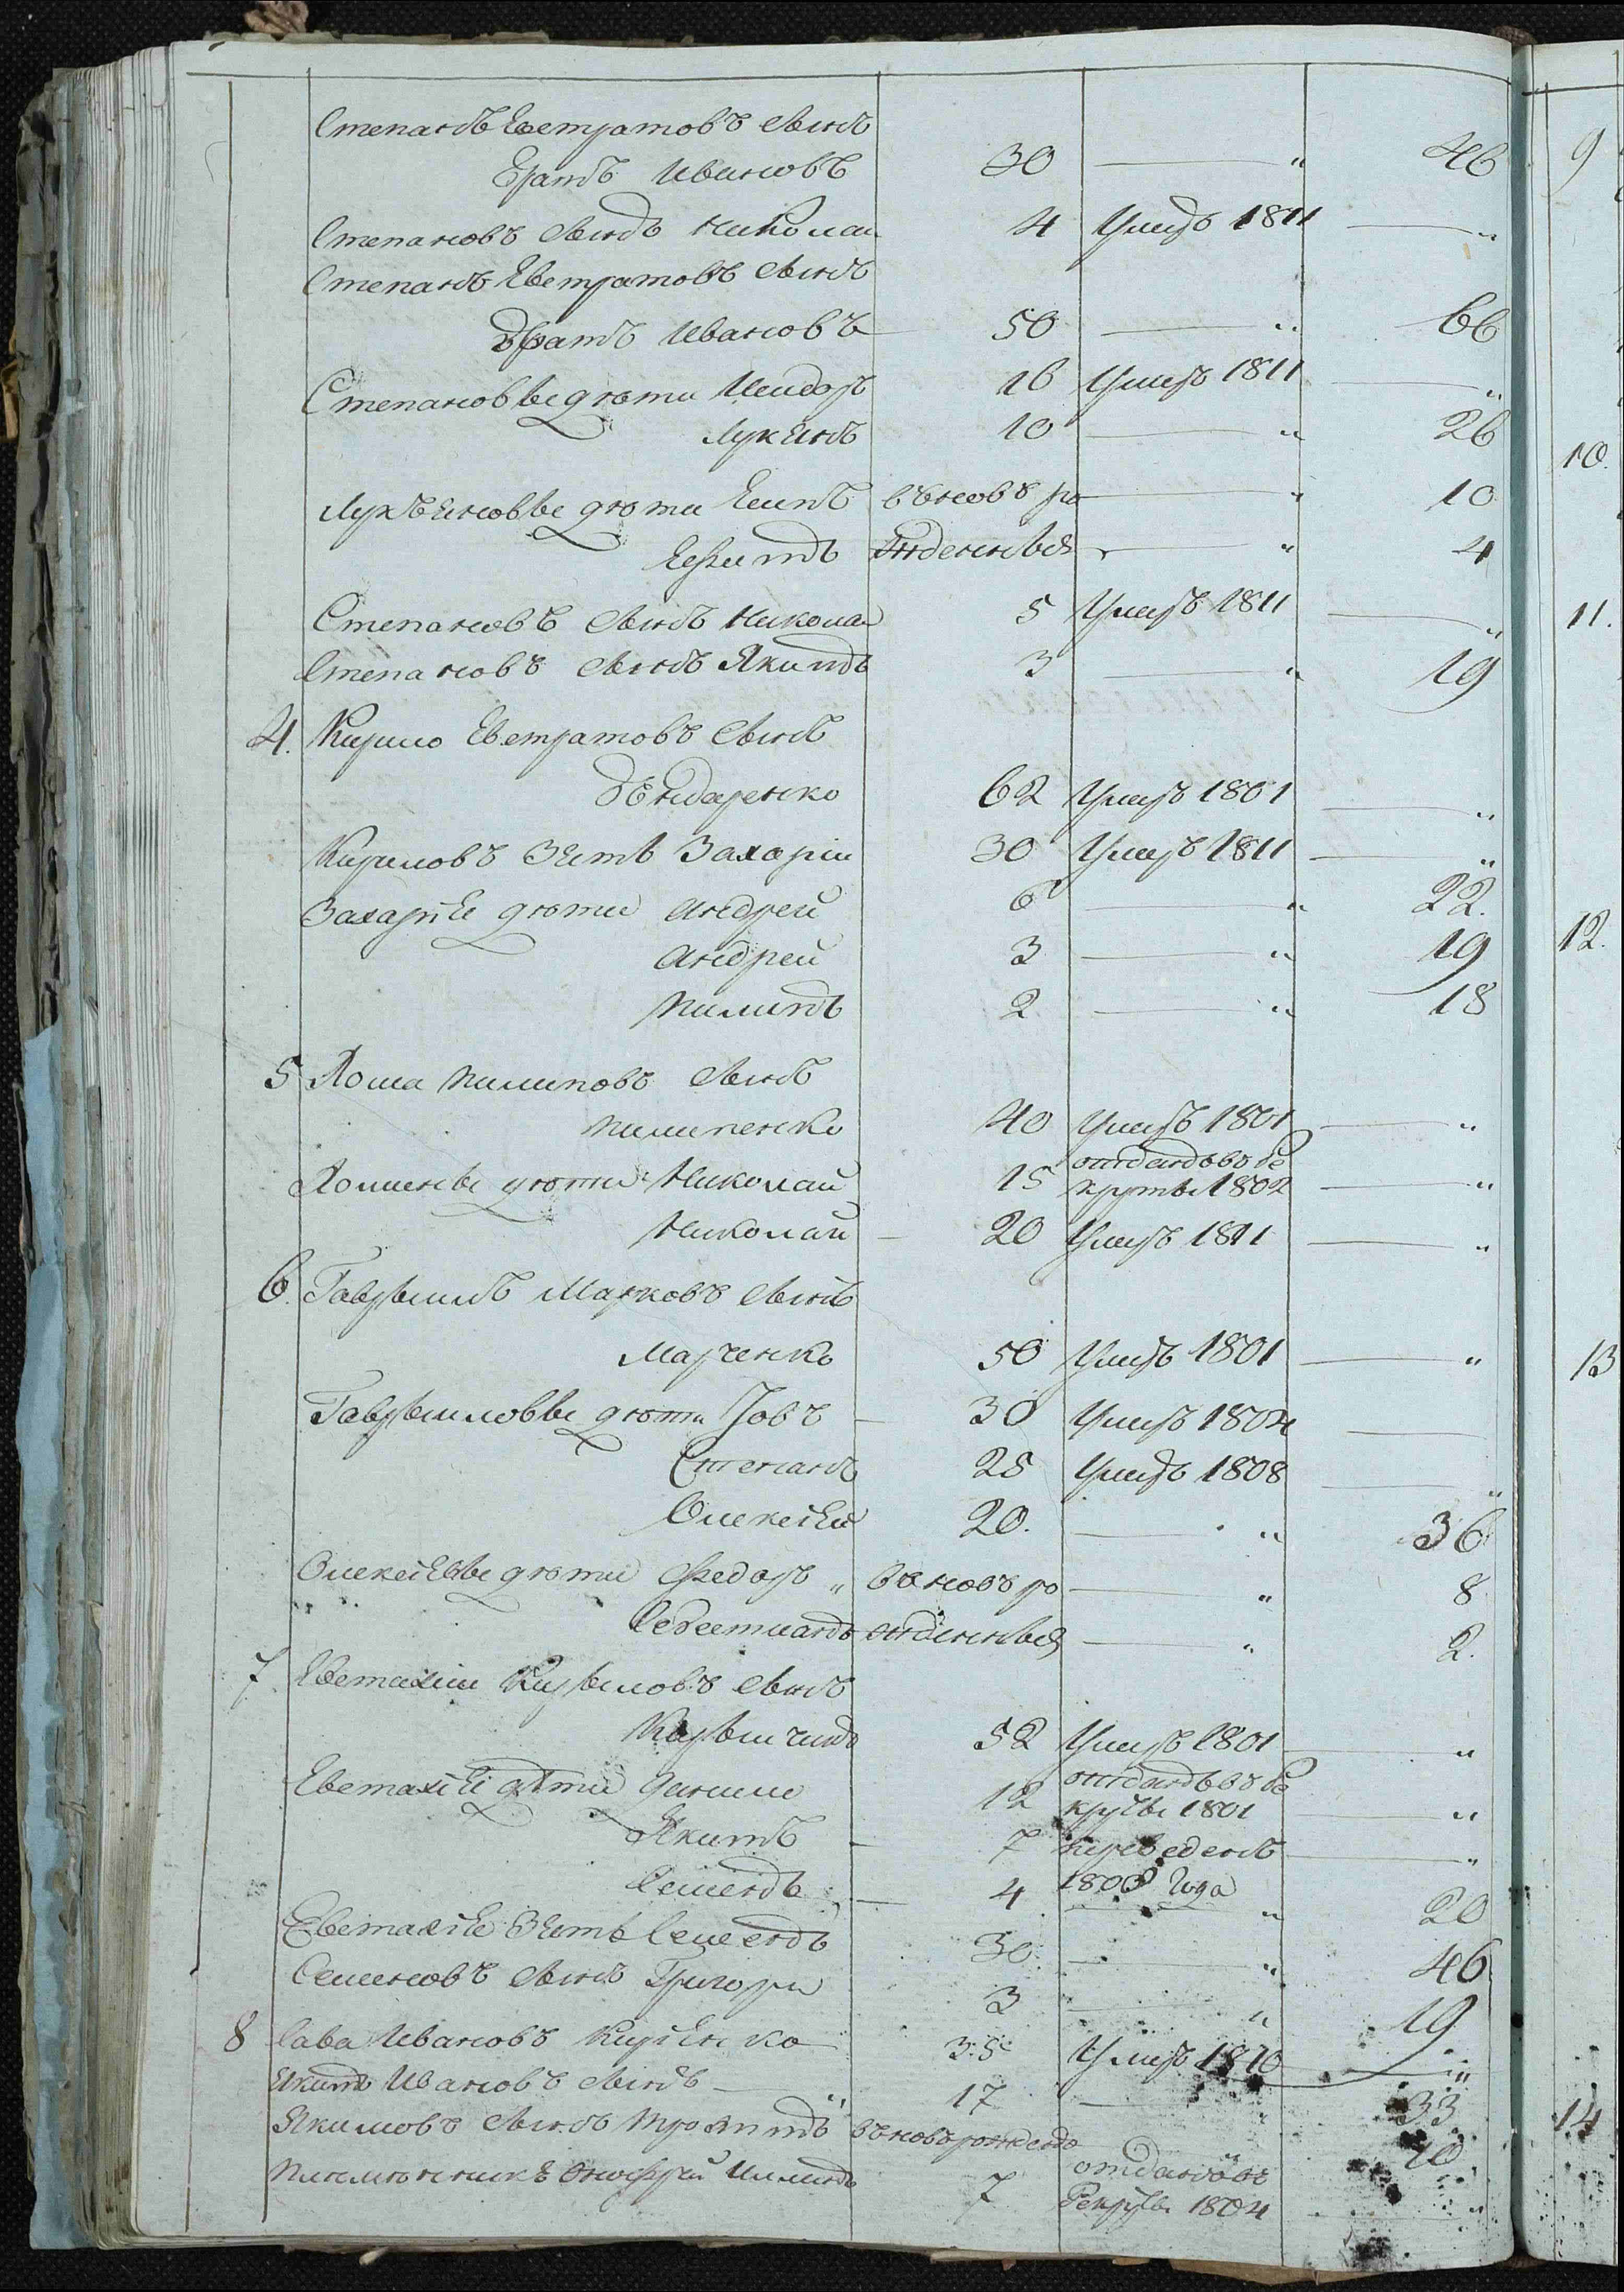 Степанъ Евстратовъ сынъ
братъ Ивановъ 30 — " 46
Степановъ сынъ Николай 4 умеръ 1811 — "
Степанъ Евстратовъ сынъ
братъ Ивановъ 50 — " 66
Степановы дѣти Исидоръ 16 умеръ 1811 — "
Лукянъ 10 — " 26
Лукъяновы дѣти Есипъ вновь ро — " 10
Ефимъ жденныя — " 4
Степановъ сынъ Николай 5 умеръ 1811 — "
Степановъ сынъ Якимъ 3 — " 19
4. Кирило Евстратовъ сынъ
бондаренко 62 умеръ 1801 — "
Кириловъ зять Захарiи 30 умеръ 1811 — "
Захарiя дѣти Андрей 6 — " 22.
Андрей 3 — " 19
Пилипъ 2 — " 18
5 Хома Пилиповъ сынъ
Пилипенко 40 умеръ 1801 — "
Хомины дѣти Николай 15 отданъ въ ре
круты 1802 — "
Николай — 20 умеръ 1811 — "
6. Гаврыилъ Марковъ сынъ
Марченко 50 умеръ 1801 — "
Гаврыиловы дѣти Iовъ — 30 умеръ 1804 —
Степанъ 25 умеръ 1808 — "
Олексѣй 20. — " 36
Олексѣевы дѣти Федоръ " вновь ро — " 8
Себестианъ жденныя — " 2.
7. Евстахiи Кирыловъ сынъ
52 умеръ 1801 — "
Евстахiя дѣти Данило 12 отданъ въ ре
круты 1801 — "
Якимъ — 7 переведенъ — "
Семенъ — 4 1800 года — " 20
Евстахiя зять Семенъ 30. — " 46
Семеновъ сынъ Григорри 3 — " 19
8 Сава Ивановъ 35 умеръ 1810 — "
Якимъ Ивановъ сынъ — " 17 — 33
Якимовъ сынъ Трофимъ вновь рожденъ " 10
Племянникъ Онофрей 7 отданъ въ
Рекруты 1804 — "
9
10.
11.
12.
13
14